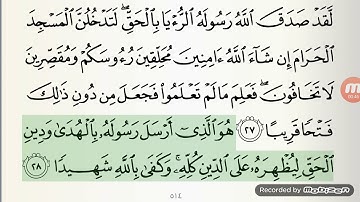 لَّقَدْ صَدَقَ ٱللَّهُ رَسُولَهُ ٱلرُّءْيَا بِٱلْحَقِّ ۖ لَتَدْخُلُنَّ ٱلْمَسْجِدَ
ٱلْحَرَامَ إِن شَآءَ ٱللَّهُ ءَامِنِينَ مُحَلِّقِينَ رُءُوسَكُمْ وَمُقَصِّرِينَ
لَا تَخَافُونَ ۖ فَعَلِمَ مَا لَمْ تَعْلَمُوا۟ فَجَعَلَ مِن دُونِ ذَٰلِكَ
فَتْحًا قَرِيبًا ٢٧ هُوَ ٱلَّذِىٓ أَرْسَلَ رَسُولَهُۥ بِٱلْهُدَىٰ وَدِينِ
ٱلْحَقِّ لِيُظْهِرَهُۥ عَلَى ٱلدِّينِ كُلِّهِۦ ۚ وَكَفَىٰ بِٱللَّهِ شَهِيدًا ٢٨
٥١٤
Recorded by
Mobizen